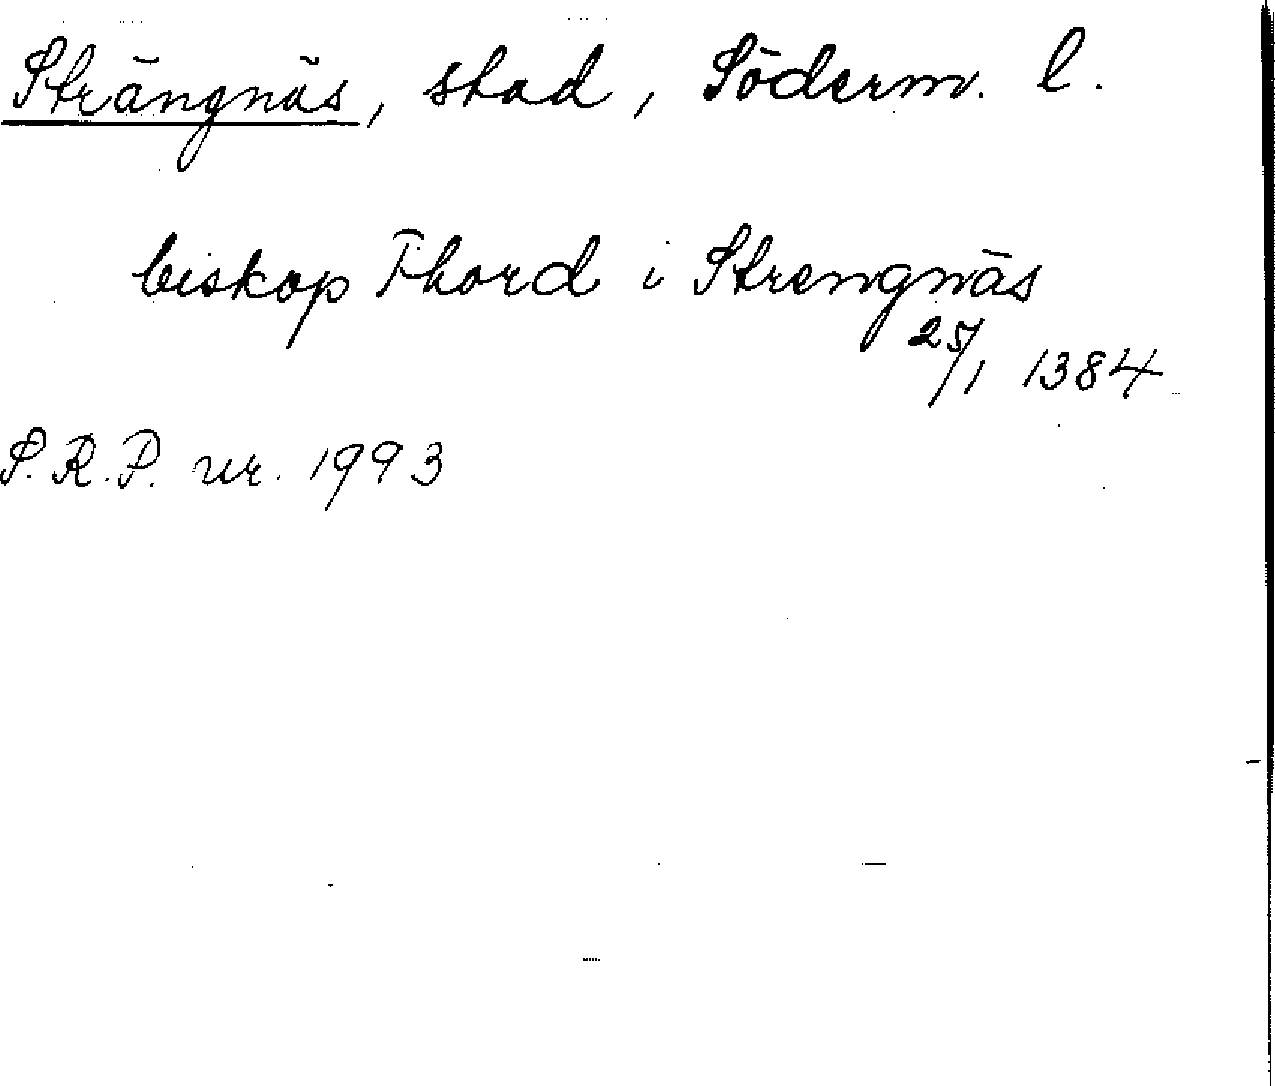 Strängnäs, stad, Söderm. l.
biskop Thord i Strengnäs
25/1 1384
S.R.P. nr. 1993